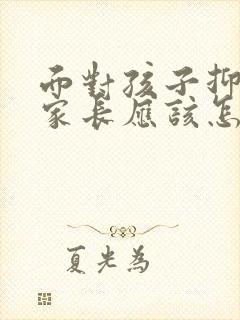 而對孩子抑
家長應該怎
夏光為